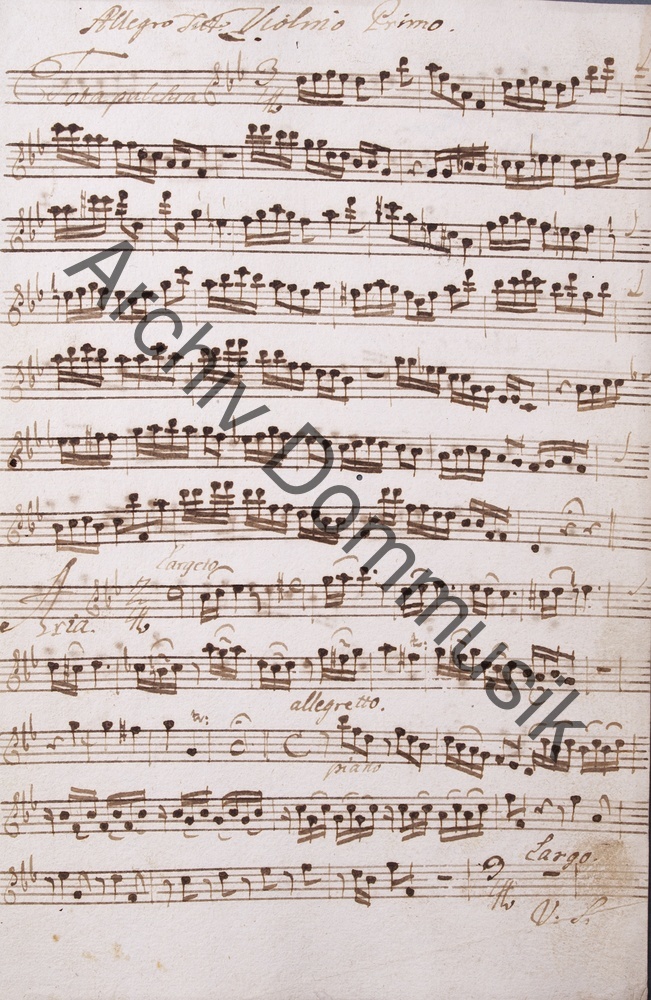 Allegro Violino Primo.
Tota pulchra
3
4
Largeto
Aria.
2
4
tr:
allegretto.
tr:
C
piano
Largo.
3
4
V: S.
Archiv Dommusik